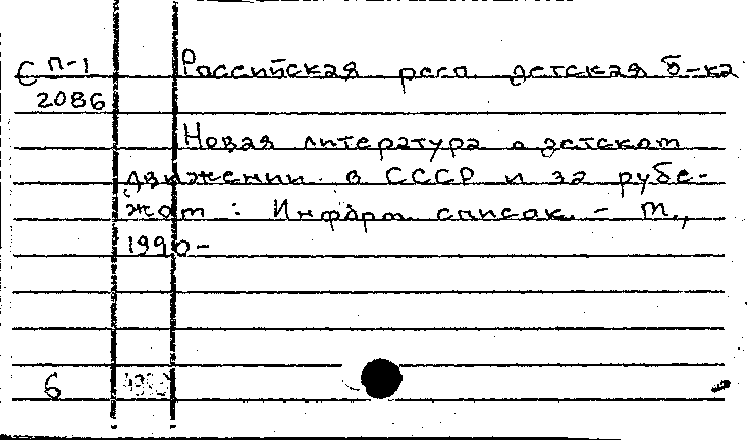 С П-1
2086
Российская респ детская б-ка
Новая литература о детском
движении в СССР и за рубе-
жом : Информ. список. - М.,
1990-
6